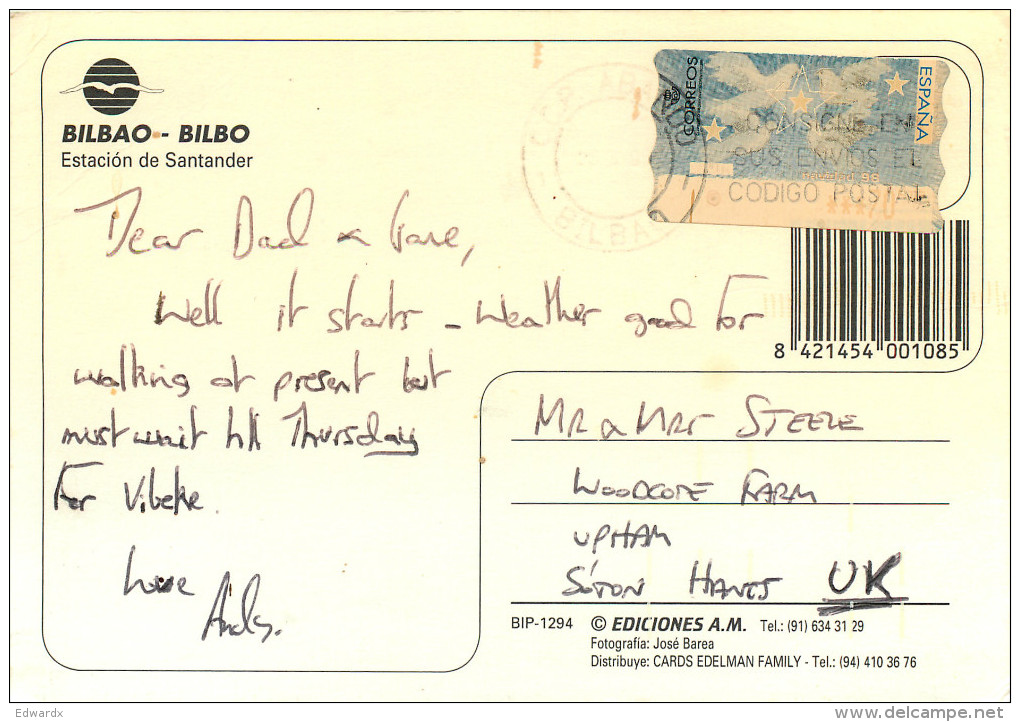 BILBAO - BILBO
Estación de Santander
CORREOS
ESPAÑA
CONSIGNE EN
SUS ENVIOS EL
CODIGO POSTAL
navidad 98
BILBAO
Dear Dad &
Well it starts - weather good for
walking at present but
must wait till Thursday
For Vibeke.
Love
Andy.
8 421454 001085
MR & MRS STEELE
WOODCOTE FARM
UPHAM
SOTON HANTS UK
BIP-1294 © EDICIONES A.M. Tel.: (91) 634 31 29
Fotografía: José Barea
Distribuye: CARDS EDELMAN FAMILY - Tel.: (94) 410 36 76
Edwardx
www.delcampe.net